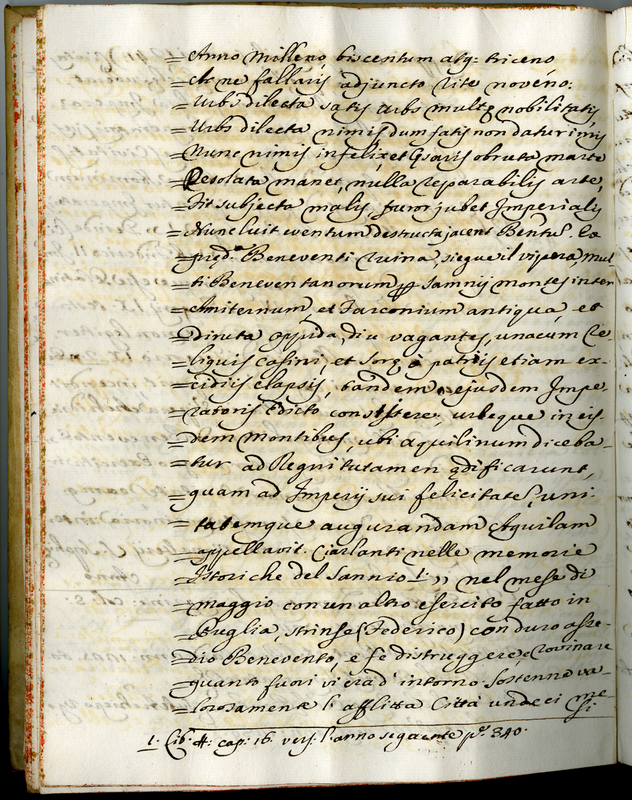 = Anno Milleno, biscentum atq: triceno
= Ac ne fallaris adjuncto rite novéno:
= Urbs dilecta satis urbs multæ nobilitatis
= Urbs dilecta nimis dum satis non datur imis
= Nunc nimis infelix, et Gravis obruta marte
= Desolata manet, nulla reparabilis arte,
= Fit subjecta malis, furor jubet Imperialis
= Nunc luit eventum destructa jacens Bentũ. Ea
= præd.ª Beneventi ruina, siegue il Vipera, mul
= ti Beneventanorum per Samnij montes inter
= Amiternum, et Farconium antiqua, et
= diruta oppida, diu vagantes, unacum re-
= liquis Cassini, et Soræ à patriis etiam ex-
= cidiis elapsis, tandem ejusdem Impe
= ratoris Edicto consistere, urbeque in eis
= dem Montibus, ubi aquilinum diceba-
= tur ad Regni tutamen ædificarunt,
= quam ad Imperij sui felicitatẽ, uni-
= tatemque augurandam Aquilam
= appellavit. Ciarlanti nelle memorie
= Istoriche del Sannio 1. ,, nel mese di
= maggio con un altro esercito fatto in
= Puglia, strinse (Federico) con duro asse-
= dio Benevento, e fe distruggere, e rovinare
= quanto fuori vi era d'intorno. Sostenne va-
= lorosamente l'afflitta Città undeci me
si
1. Lib. 4. cap: 16. vers. l'anno seguente pag. 340.